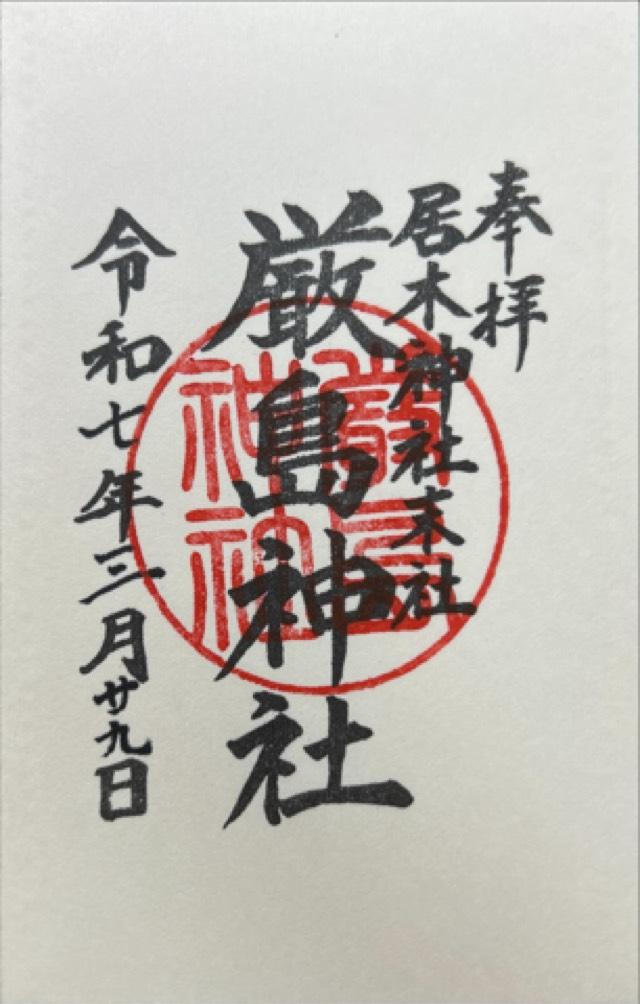 奉拝
居木神社末社
厳島神社
令和七年三月廿九日